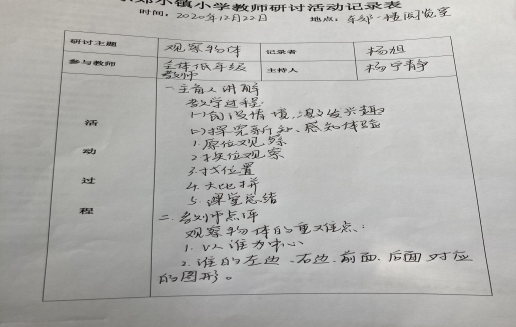 小镇小学教师研讨活动记录表
时间：2020年12月22日 地点：
研讨主题 观察物体 记录者 杨旭
参与教师 全体低年级教师 主持人 杨宇静
活动过程
一、主备人讲解
教学过程
(一)创设情境，激发兴趣
(二)探究新知、感知体验
1.原位观察
2.换位观察
3.找位置
4.大比拼
5.课堂总结
二、教师点评
观察物体的重难点：
1.以谁为中心
2.谁的左边、右边、前面、后面对应
的图形。